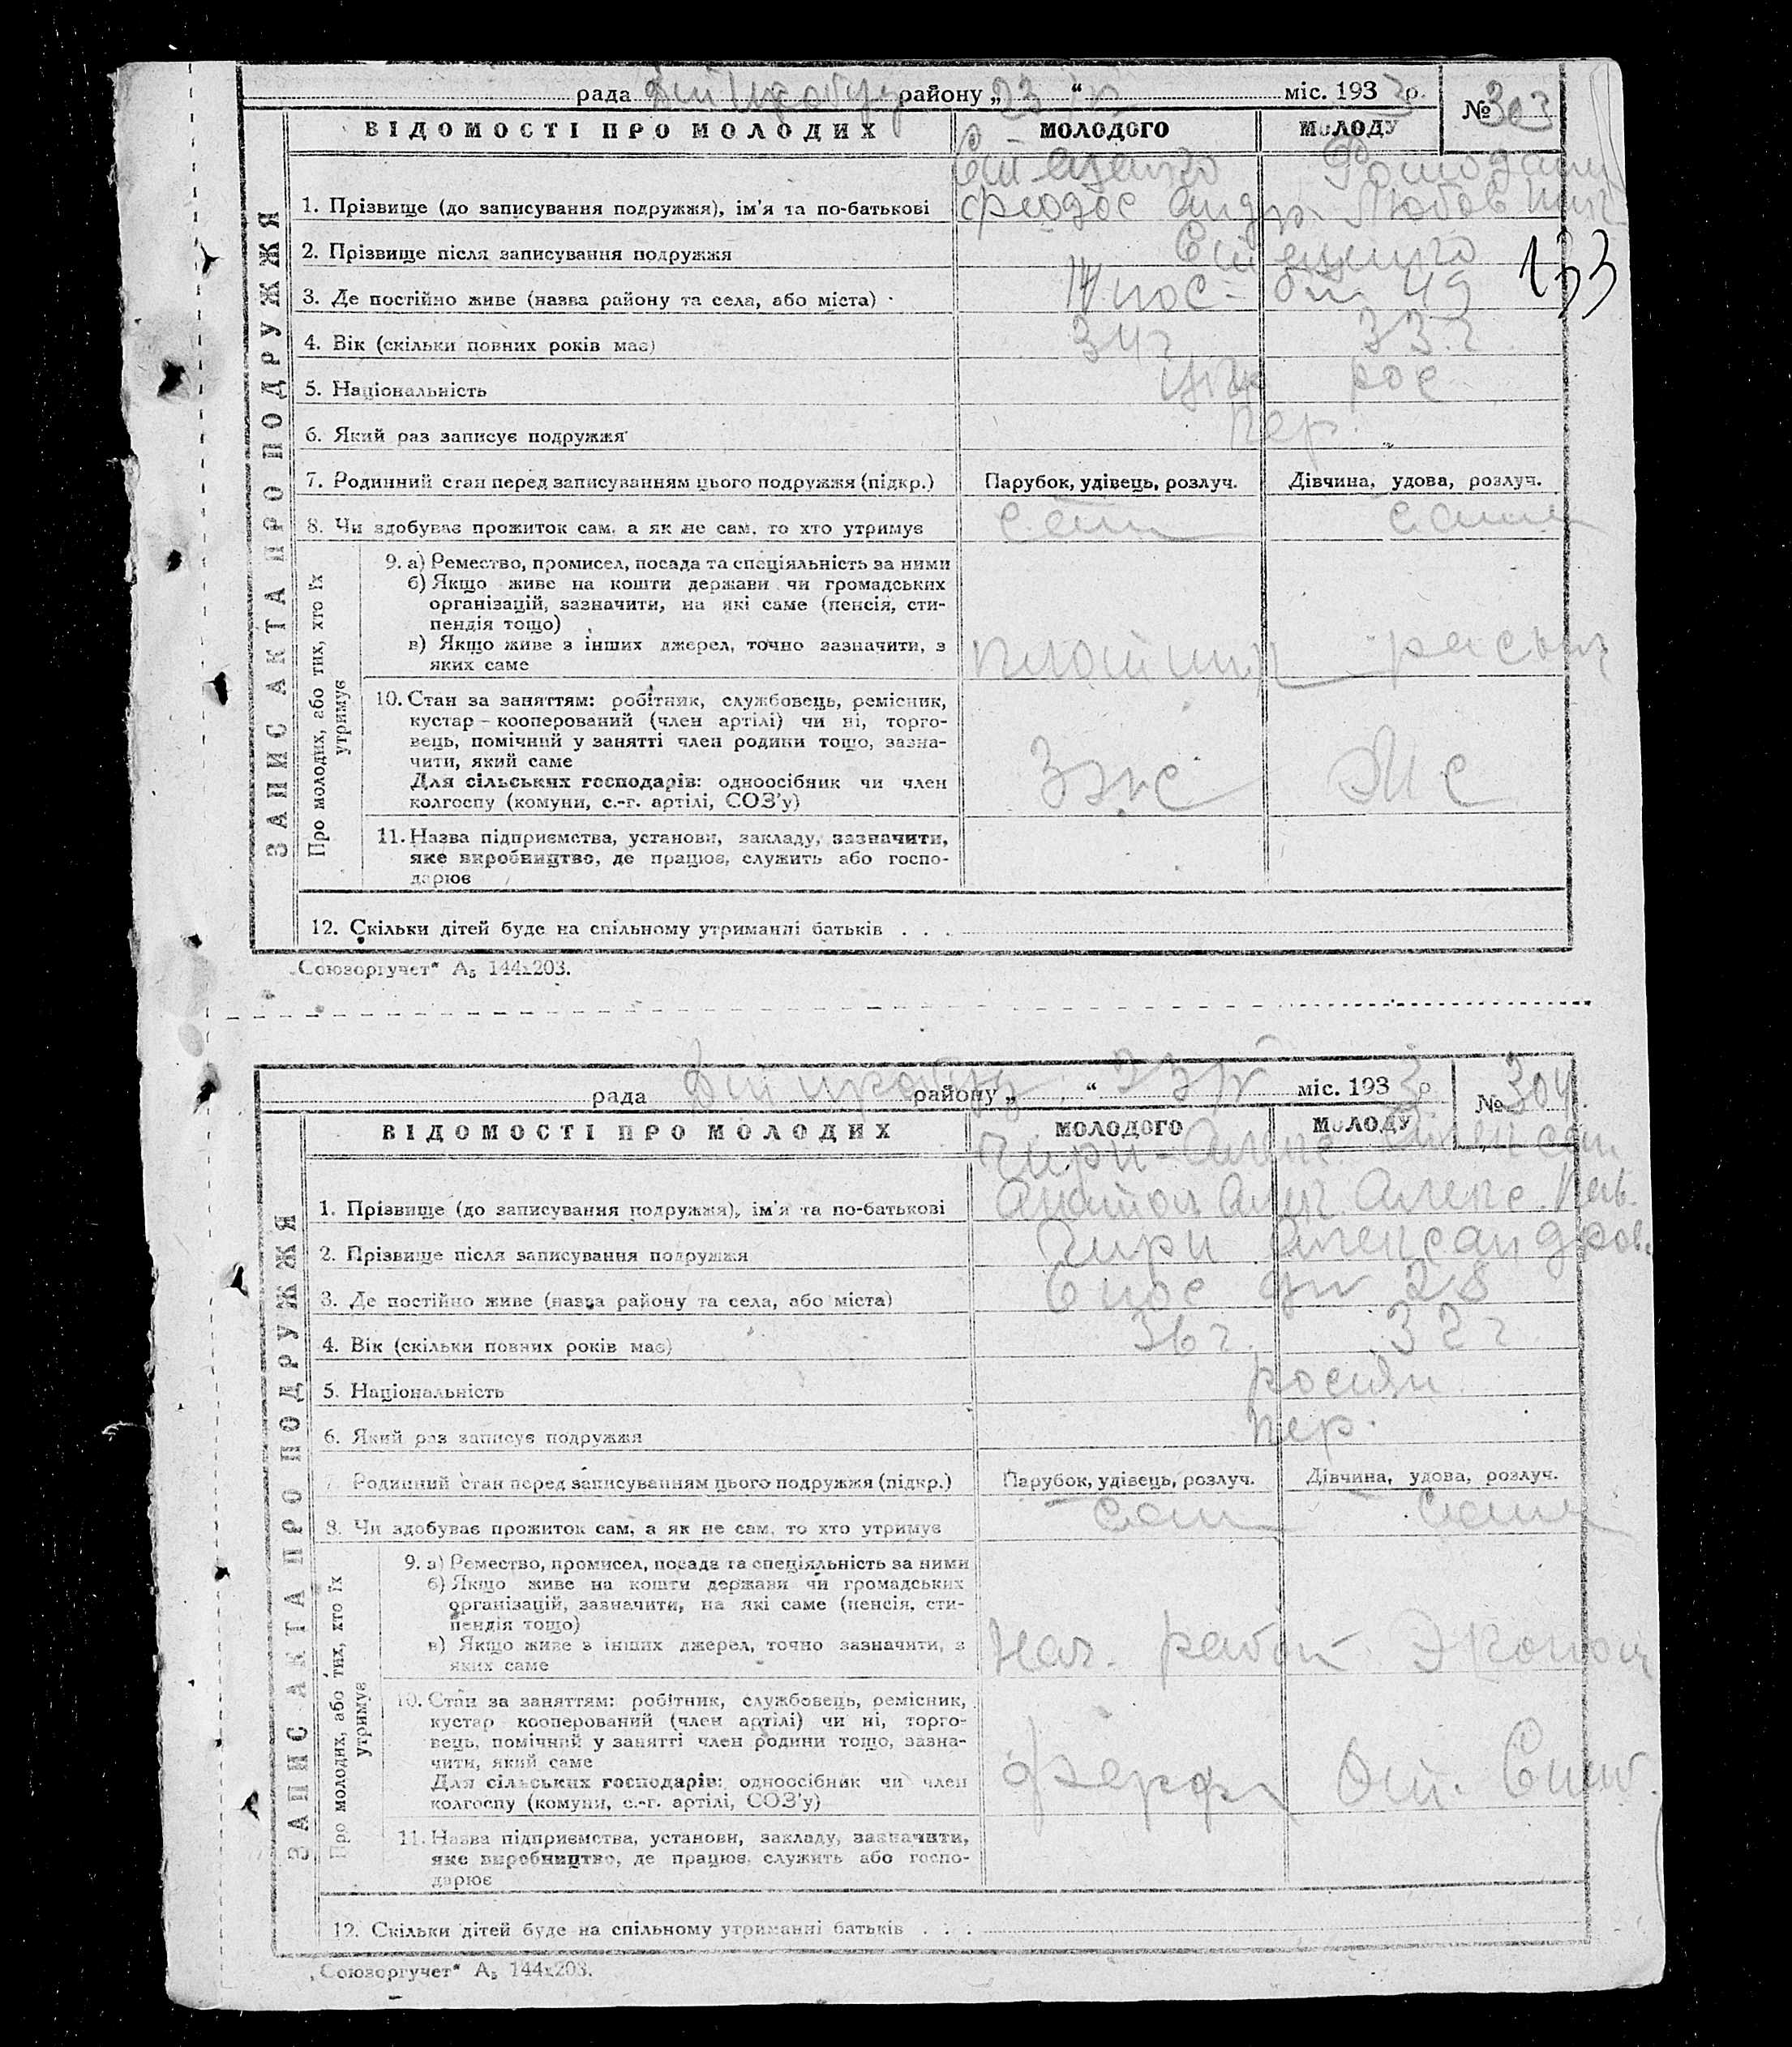 рада району „ 23 “ міс. 1933 р. № 303
ВІДОМОСТІ ПРО МОЛОДИХ МОЛОДОГО МОЛОДУ
1. Прізвище (до записування подружжя), ім'я та по-батькові Феодос Андр. Любов
2. Прізвище після записування подружжя
133
3. Де постійно живе (назва району та села, або міста) 14 пос. 49
4. Вік (скільки повних років має) 34 г 33 г
5. Національність укр рос
6. Який раз записує подружжя пер. „
7. Родинний стан перед записуванням цього подружжя (підкр.) Парубок, удівець, розлуч. Дівчина, удова, розлуч.
8. Чи здобуває прожиток сам, а як не сам, то хто утримує сам сама
ЗАПИС АКТА ПРО ПОДРУЖЖЯ
Про молодих, або тих, хто їх утримує
9. а) Ремество, промисел, посада та спеціяльність за ними
б) Якщо живе на кошти держави чи громадських
організацій, зазначити, на які саме (пенсія, сти-
пендія тощо)
в) Якщо живе з інших джерел, точно зазначити, з
яких саме
10. Стан за заняттям: робітник, службовець, ремісник,
кустар – кооперований (член артілі) чи ні, торго-
вець, помічний у занятті член родини тощо, зазна-
чити, який саме
Для сільських господарів: одноосібник чи член
колгоспу (комуни, с.-г. артілі, СОЗ'у)
11. Назва підприємства, установи, закладу, зазначити,
яке виробництво, де працює, служить або госпо-
дарює
12. Скільки дітей буде на спільному утриманні батьків . . .
„Союзоргучет“ А₅ 144х203.
рада району „ “ 23 міс. 1933 р. № 304.
ВІДОМОСТІ ПРО МОЛОДИХ МОЛОДОГО МОЛОДУ
1. Прізвище (до записування подружжя), ім'я та по-батькові Анатол Алек. Алекс. Пав.
2. Прізвище після записування подружжя Чири Александров.
3. Де постійно живе (назва району та села, або міста) 6 пос 28
4. Вік (скільки повних років має) 36 г. 32 г
5. Національність росіян
6. Який раз записує подружжя пер.
7. Родинний стан перед записуванням цього подружжя (підкр.) Парубок, удівець, розлуч. Дівчина, удова, розлуч.
8. Чи здобуває прожиток сам, а як не сам, то хто утримує сам сама
ЗАПИС АКТА ПРО ПОДРУЖЖЯ
Про молодих, або тих, хто їх утримує
9. а) Ремество, промисел, посада та спеціяльність за ними
б) Якщо живе на кошти держави чи громадських
організацій, зазначити, на які саме (пенсія, сти-
пендія тощо)
в) Якщо живе з інших джерел, точно зазначити, з
яких саме Нач. работ Эконом
10. Стан за заняттям: робітник, службовець, ремісник,
кустар кооперований (член артілі) чи ні, торго-
вець, помічний у занятті член родини тощо, зазна-
чити, який саме
Для сільських господарів: одноосібник чи член
колгоспу (комуни, с.-г. артілі, СОЗ'у)
11. Назва підприємства, установи, закладу, зазначити,
яке виробництво, де працює, служить або госпо-
дарює
12. Скільки дітей буде на спільному утриманні батьків . . .
„Союзоргучет“ А₅ 144х203.